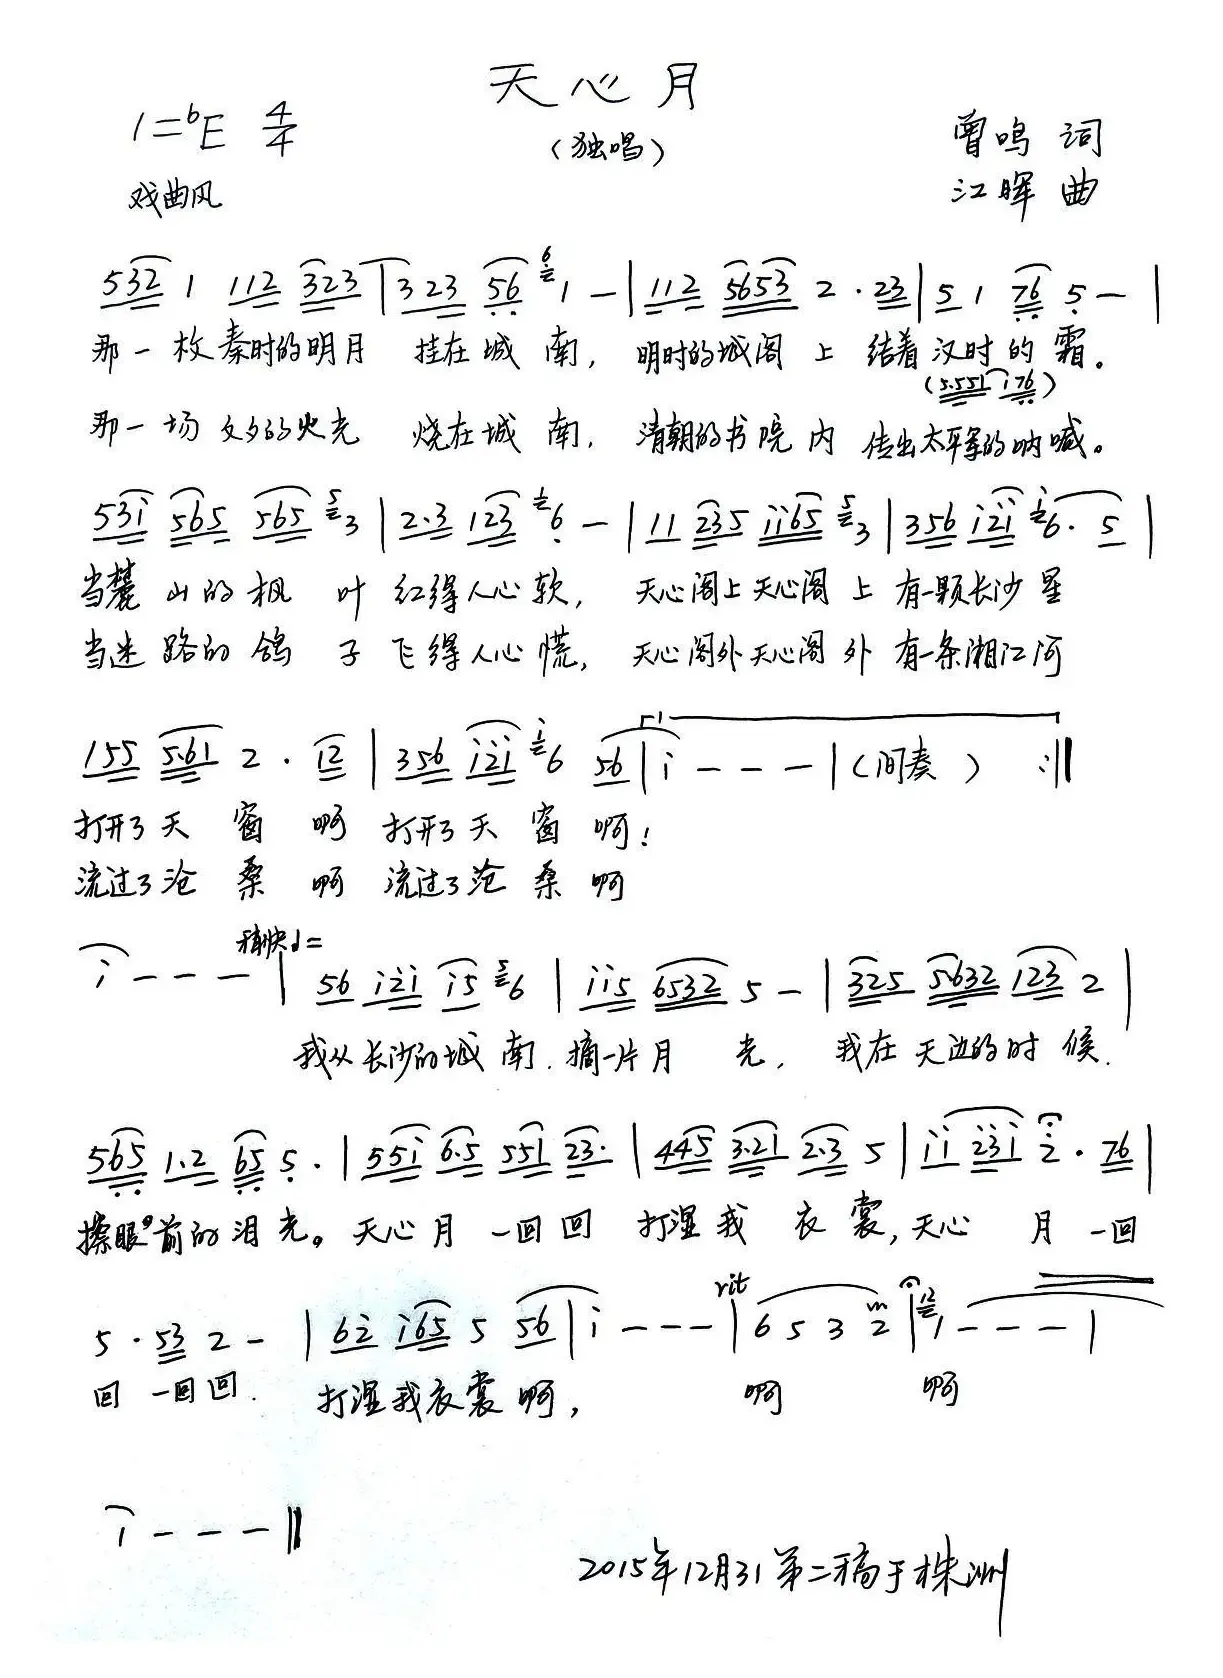 天心月
(独唱)
1=♭E 4/4
曾鸣 词
戏曲风
江晖 曲
532 1 112 323 | 323 56 6 1 - | 112 5653 2 · 23 | 5 1 76 5 - |
那一枚秦时的明月 挂在城南, 明时的城阁上 结着汉时的霜。
(5.551 i76)
那一场文夕的火光 烧在城南, 清朝的书院内 传出太平军的呐喊。
53i 565 565 5 3 | 2.3 123 1 6 - | 11 235 ii65 5 3 | 356 i2i i 6 · 5 |
当麓山的枫叶 红得人心软, 天心阁上天心阁上 有一颗长沙星
当迷路的鸽子 飞得人心慌, 天心阁外天心阁外 有一条湘江河
155 5.61 2 · 12 | 356 i2i i 6 56 | i - - - | (间奏) :||
打开了天窗啊 打开了天窗啊!
流过了沧桑啊 流过了沧桑啊
i - - - | 稍快♩= 56 i2i i5 5 6 | ii5 6532 5 - | 325 5632 123 2 |
我从长沙的城南.摘一片月光, 我在天边的时候.
565 1.2 65 5 · | 55i 6.5 551 23· | 445 3.21 2.3 5 | ii 23i 2 · 76 |
擦眼前的泪光。天心月一回回 打湿我衣裳,天心月一回
rit
5 · 53 2 - | 62 i65 5 56 | i - - - | 6 5 3 2 | 12 1 - - - |
回一回回. 打湿我衣裳啊, 啊 啊
i - - - ||
2015年12月31第二稿于株洲